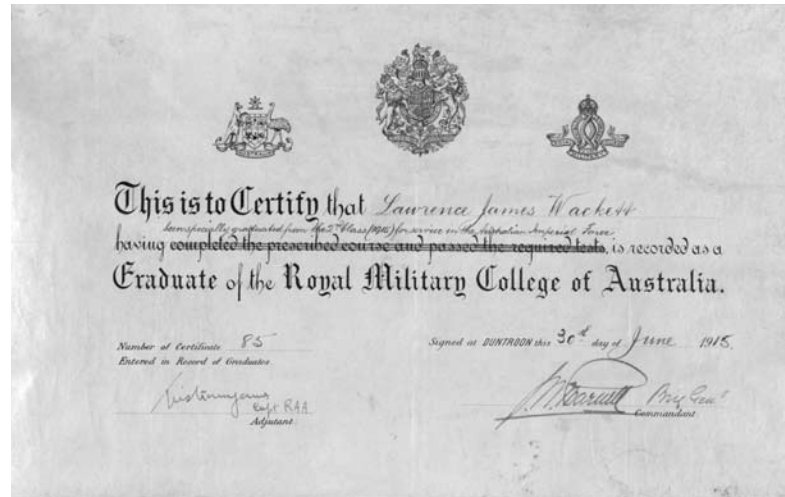 AUSTRALIA
This is to Certify that Lawrence James Wackett
been specially graduated from the 2nd Class (1915) for service in the Australian Imperial Force
having completed the prescribed course and passed the required tests, is recorded as a
Graduate of the Royal Military College of Australia.
Number of Certificate 85
Entered in Record of Graduates.
Signed at DUNTROON this 30th day of June 1915.
Capt RAA
Adjutant.
Brig Genl
Commandant.